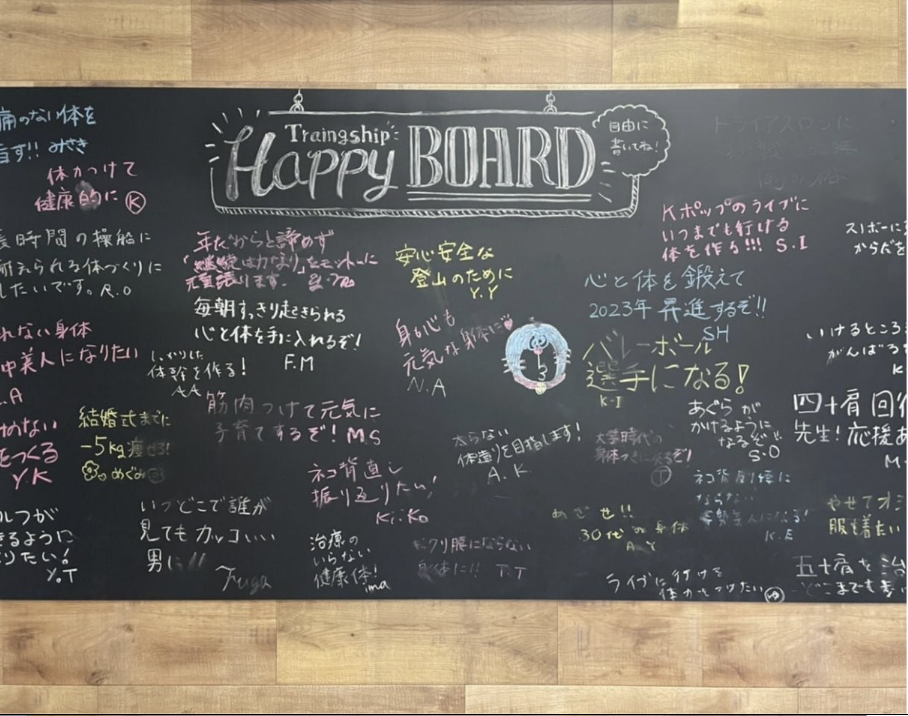 Traingship
Happy BOARD
自由に
書いてね!
痛のない体を
指す!! みさき
体力つけて
健康的に Ⓚ
長時間の操船に
耐えられる体づくりに
したいです。R.O
れない身体
中美人になりたい
.A
をつくる
YK
結婚式までに
-5kg痩せる!
めぐみ
ルつが
きるように
りたい!
Y.T
年だからと諦めず
「継続は力なり」をモットーに
頑張ります。
毎朝すっきり起きられる
心と体を手に入れるぞ!
F.M
しっかりした
体幹を作る!
A.A
筋肉つけて元気に
子育てするぞ! M.S
ネコ背直し
振り返りたい!
Kiriko
いつどこで誰が
見てもカッコいい
男に!!
Fuga
治療の
いらない
健康体!
ima
安心安全な
登山のために
Y.Y
身も心も
元気な身体に♥
N.A
太らない
体造りを目指します!
A.K
ギックリ腰にならない
身体に!! T.T
トライアスロンに
Kポップのライブに
いつまでも行ける
体を作る!!! S.I
心と体を鍛えて
2023年 昇進するぞ!!
SH
バレーボール
選手になる!
K-I
あぐらが
かけるように
なるぞ
S.O
大学時代の
身体つきに戻るぞ!
Ⓣ
ネコ背
ならない
K.E
めざせ!!
30代の身体
A.Y
ライブに行ける
体力をつけたい
スポーに
からだを
いけるところ
がんばる
K
四十肩回復
先生!応援あ
M.
やせてオシ
服着たい
五十肩を治
どこまでも